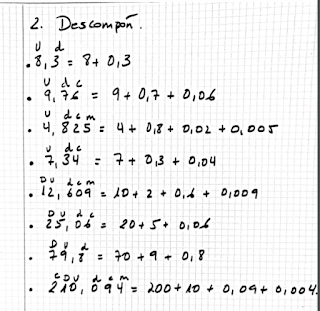 2. Descompón.
U d
. 8,3 = 8 + 0,3
U d c
. 9,76 = 9 + 0,7 + 0,06
U d c m
. 4,825 = 4 + 0,8 + 0,02 + 0,005
U d c
. 7,34 = 7 + 0,3 + 0,04
D U d c m
. 12,609 = 10 + 2 + 0,6 + 0,009
D U d c
. 25,06 = 20 + 5 + 0,06
D U d
. 79,8 = 70 + 9 + 0,8
C D U d c m
. 210,094 = 200 + 10 + 0,09 + 0,004.